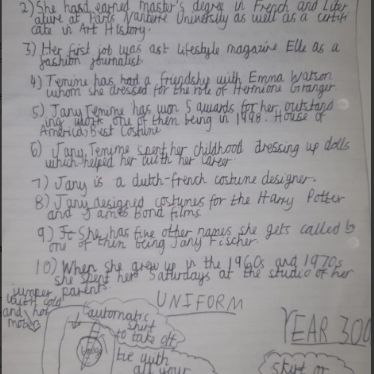 2) She hard earned master's degree in French and Liter
ature at Paris Nanterre University as well as a certifi
cate in Art History.
3) Her first job was ast Lifestyle magazine Elle as a
fashion journalist.
4) Temime has had a friendship with Emma Watson
whom she dressed for the role of Hermione Granger.
5) Jany Temime has won 5 awards for her outstand
ing work one of them being in 1998. House of
America, Best Costume
6) Jany Temime spent her childhood dressing up dolls
which helped her with her career
7) Jany is a dutch-french costume designer.
8) Jany designed costumes for the Harry Potter
and James Bond films
9) She has five other names she gets called b
one of them being Jany Fischer.
10) When she grew up in the 1960s and 1970s
she spent her Saturdays at the studio of her
parents.
UNIFORM
jumper
with cold
and hot
mode
automatic
shirt
to take off
tie with
all your
YEAR 300
skirt or